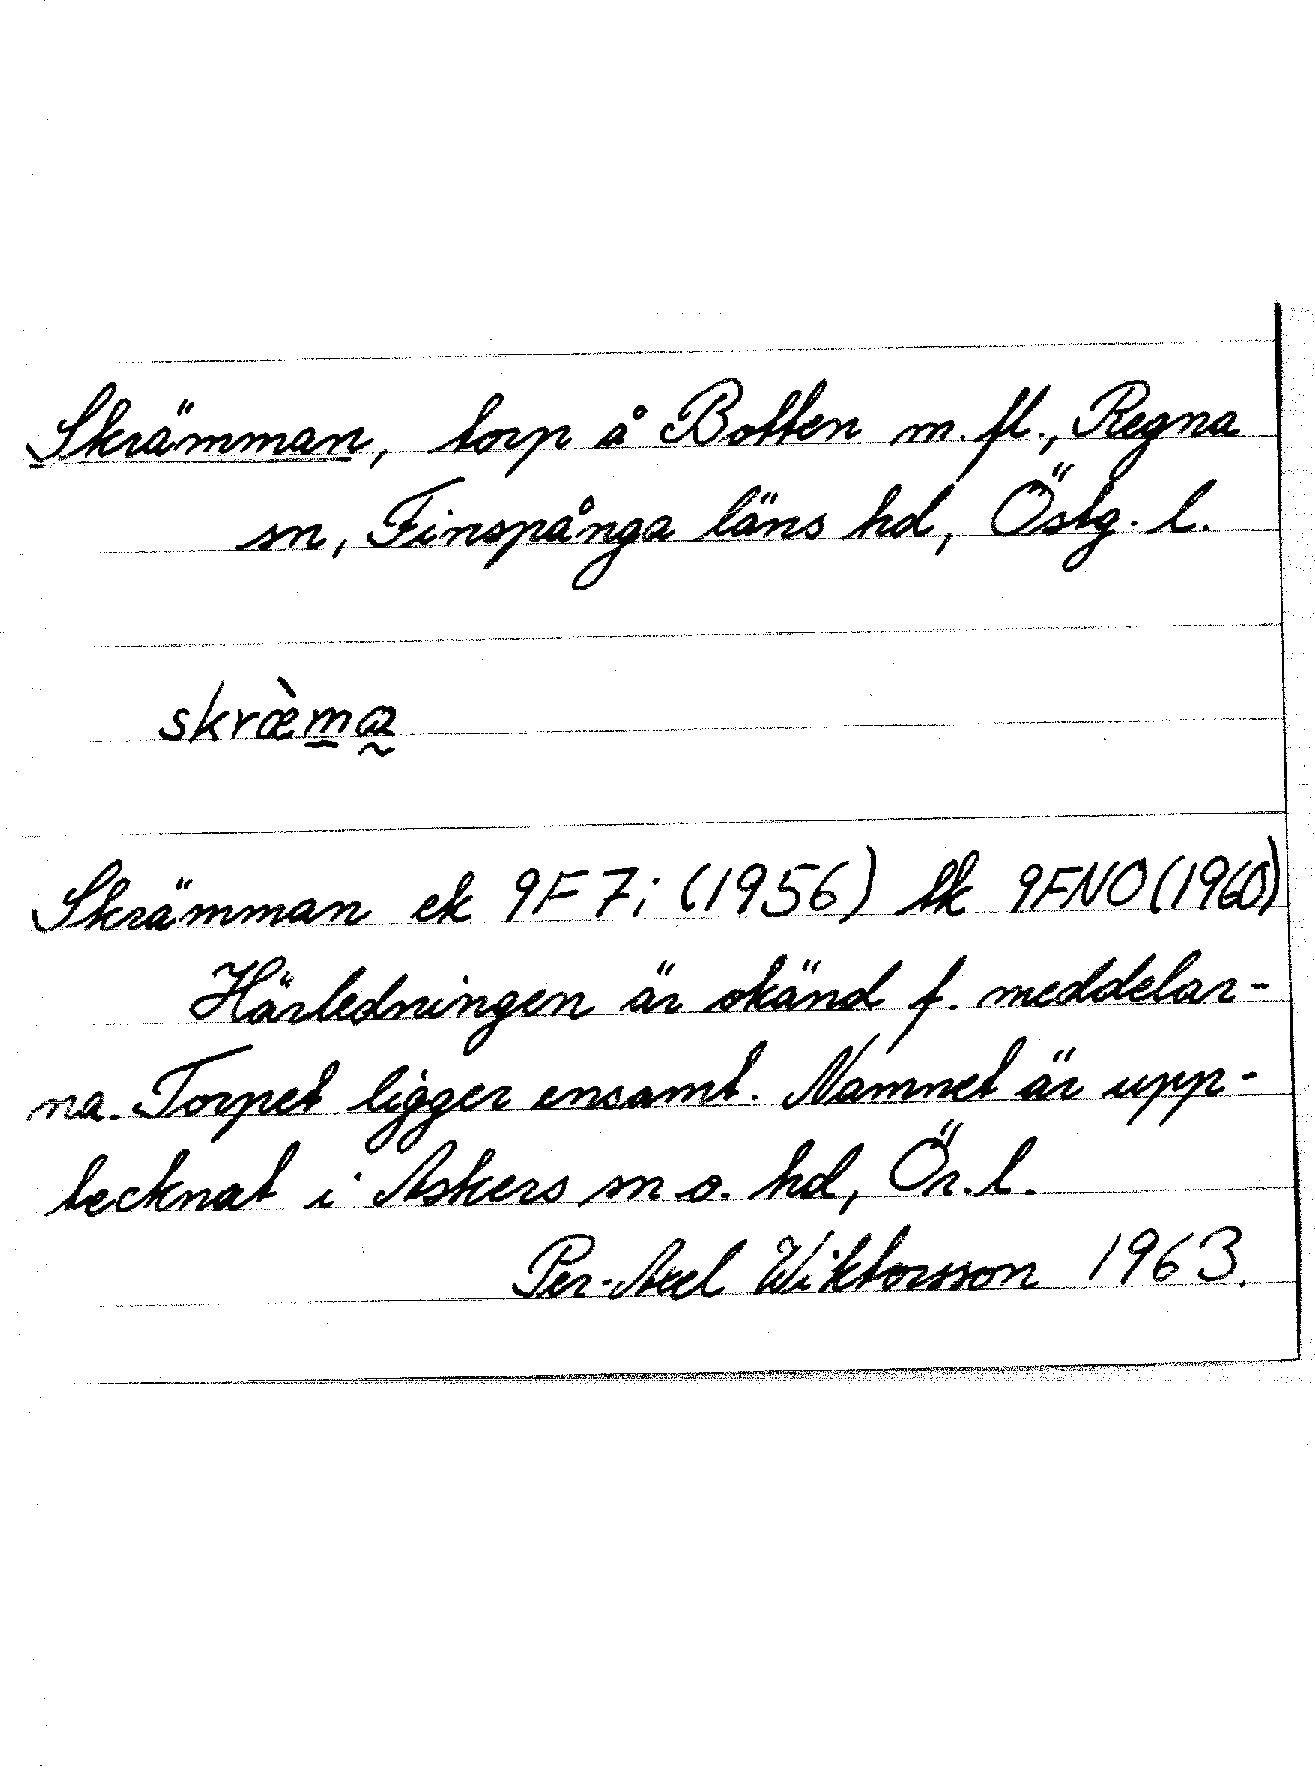 Skrämman, torp å Botten m. fl., Regna
sn, Finspånga läns hd, Östg. l.
skræ̀ma
Skrämman ek 9F 7i (1956) tk 9FNO (1960)
Härledningen är okänd f. meddelar-
na. Torpet ligger ensamt. Namnet är upp-
tecknat i Askers sn o. hd, Ör. l.
Per-Axel Wiktorsson 1963.